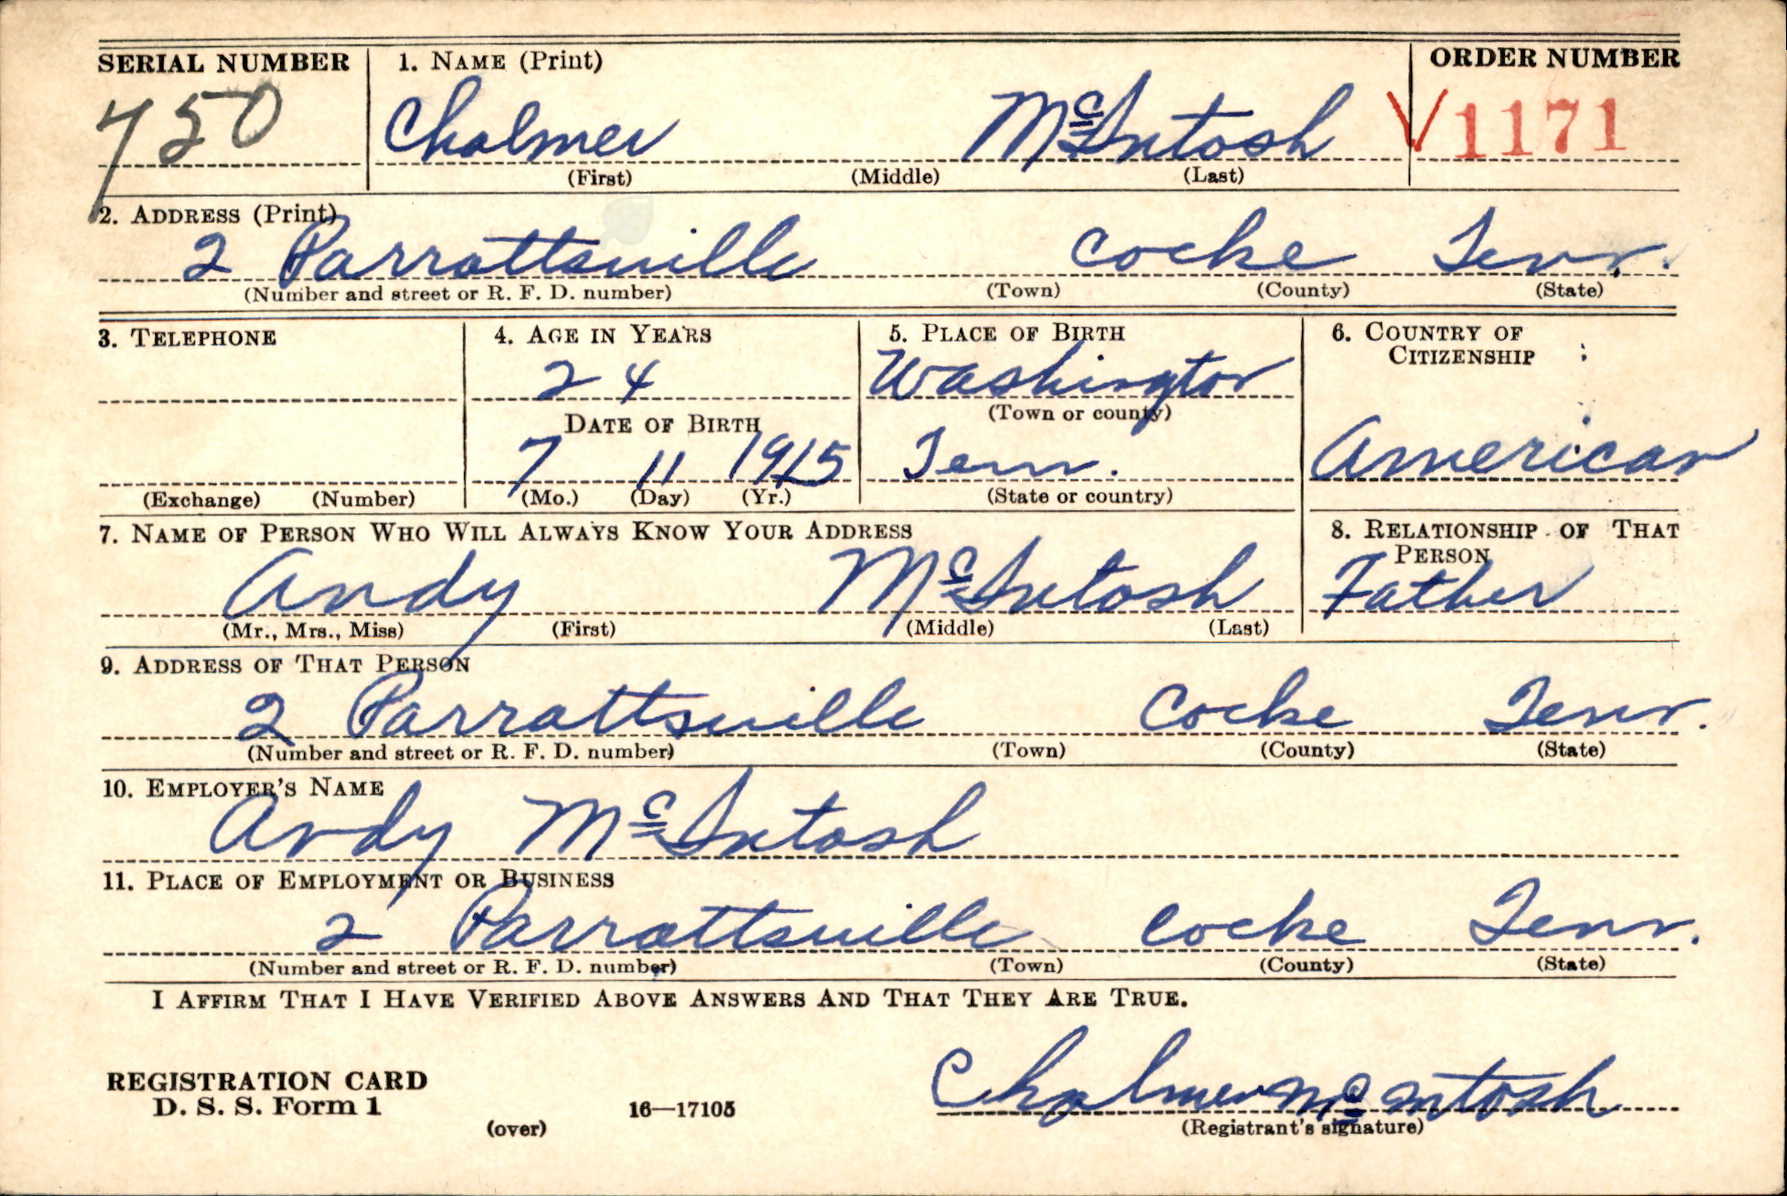 SERIAL NUMBER 1. NAME (Print) ORDER NUMBER
750 Chalmer McIntosh V1171
(First) (Middle) (Last)
2. ADDRESS (Print)
2 Parrottsville Cocke Tenn.
(Number and street or R. F. D. number) (Town) (County) (State)
3. TELEPHONE 4. AGE IN YEARS 5. PLACE OF BIRTH 6. COUNTRY OF CITIZENSHIP
24 Washington
DATE OF BIRTH (Town or county)
7 11 1915 Tenn. American
(Exchange) (Number) (Mo.) (Day) (Yr.) (State or country)
7. NAME OF PERSON WHO WILL ALWAYS KNOW YOUR ADDRESS 8. RELATIONSHIP OF THAT PERSON
Andy McIntosh Father
(Mr., Mrs., Miss) (First) (Middle) (Last)
9. ADDRESS OF THAT PERSON
2 Parrottsville Cocke Tenn.
(Number and street or R. F. D. number) (Town) (County) (State)
10. EMPLOYER'S NAME
Andy McIntosh
11. PLACE OF EMPLOYMENT OR BUSINESS
2 Parrottsville Cocke Tenn.
(Number and street or R. F. D. number) (Town) (County) (State)
I AFFIRM THAT I HAVE VERIFIED ABOVE ANSWERS AND THAT THEY ARE TRUE.
REGISTRATION CARD
D. S. S. Form 1 16—17105 Chalmer McIntosh
(over) (Registrant's signature)